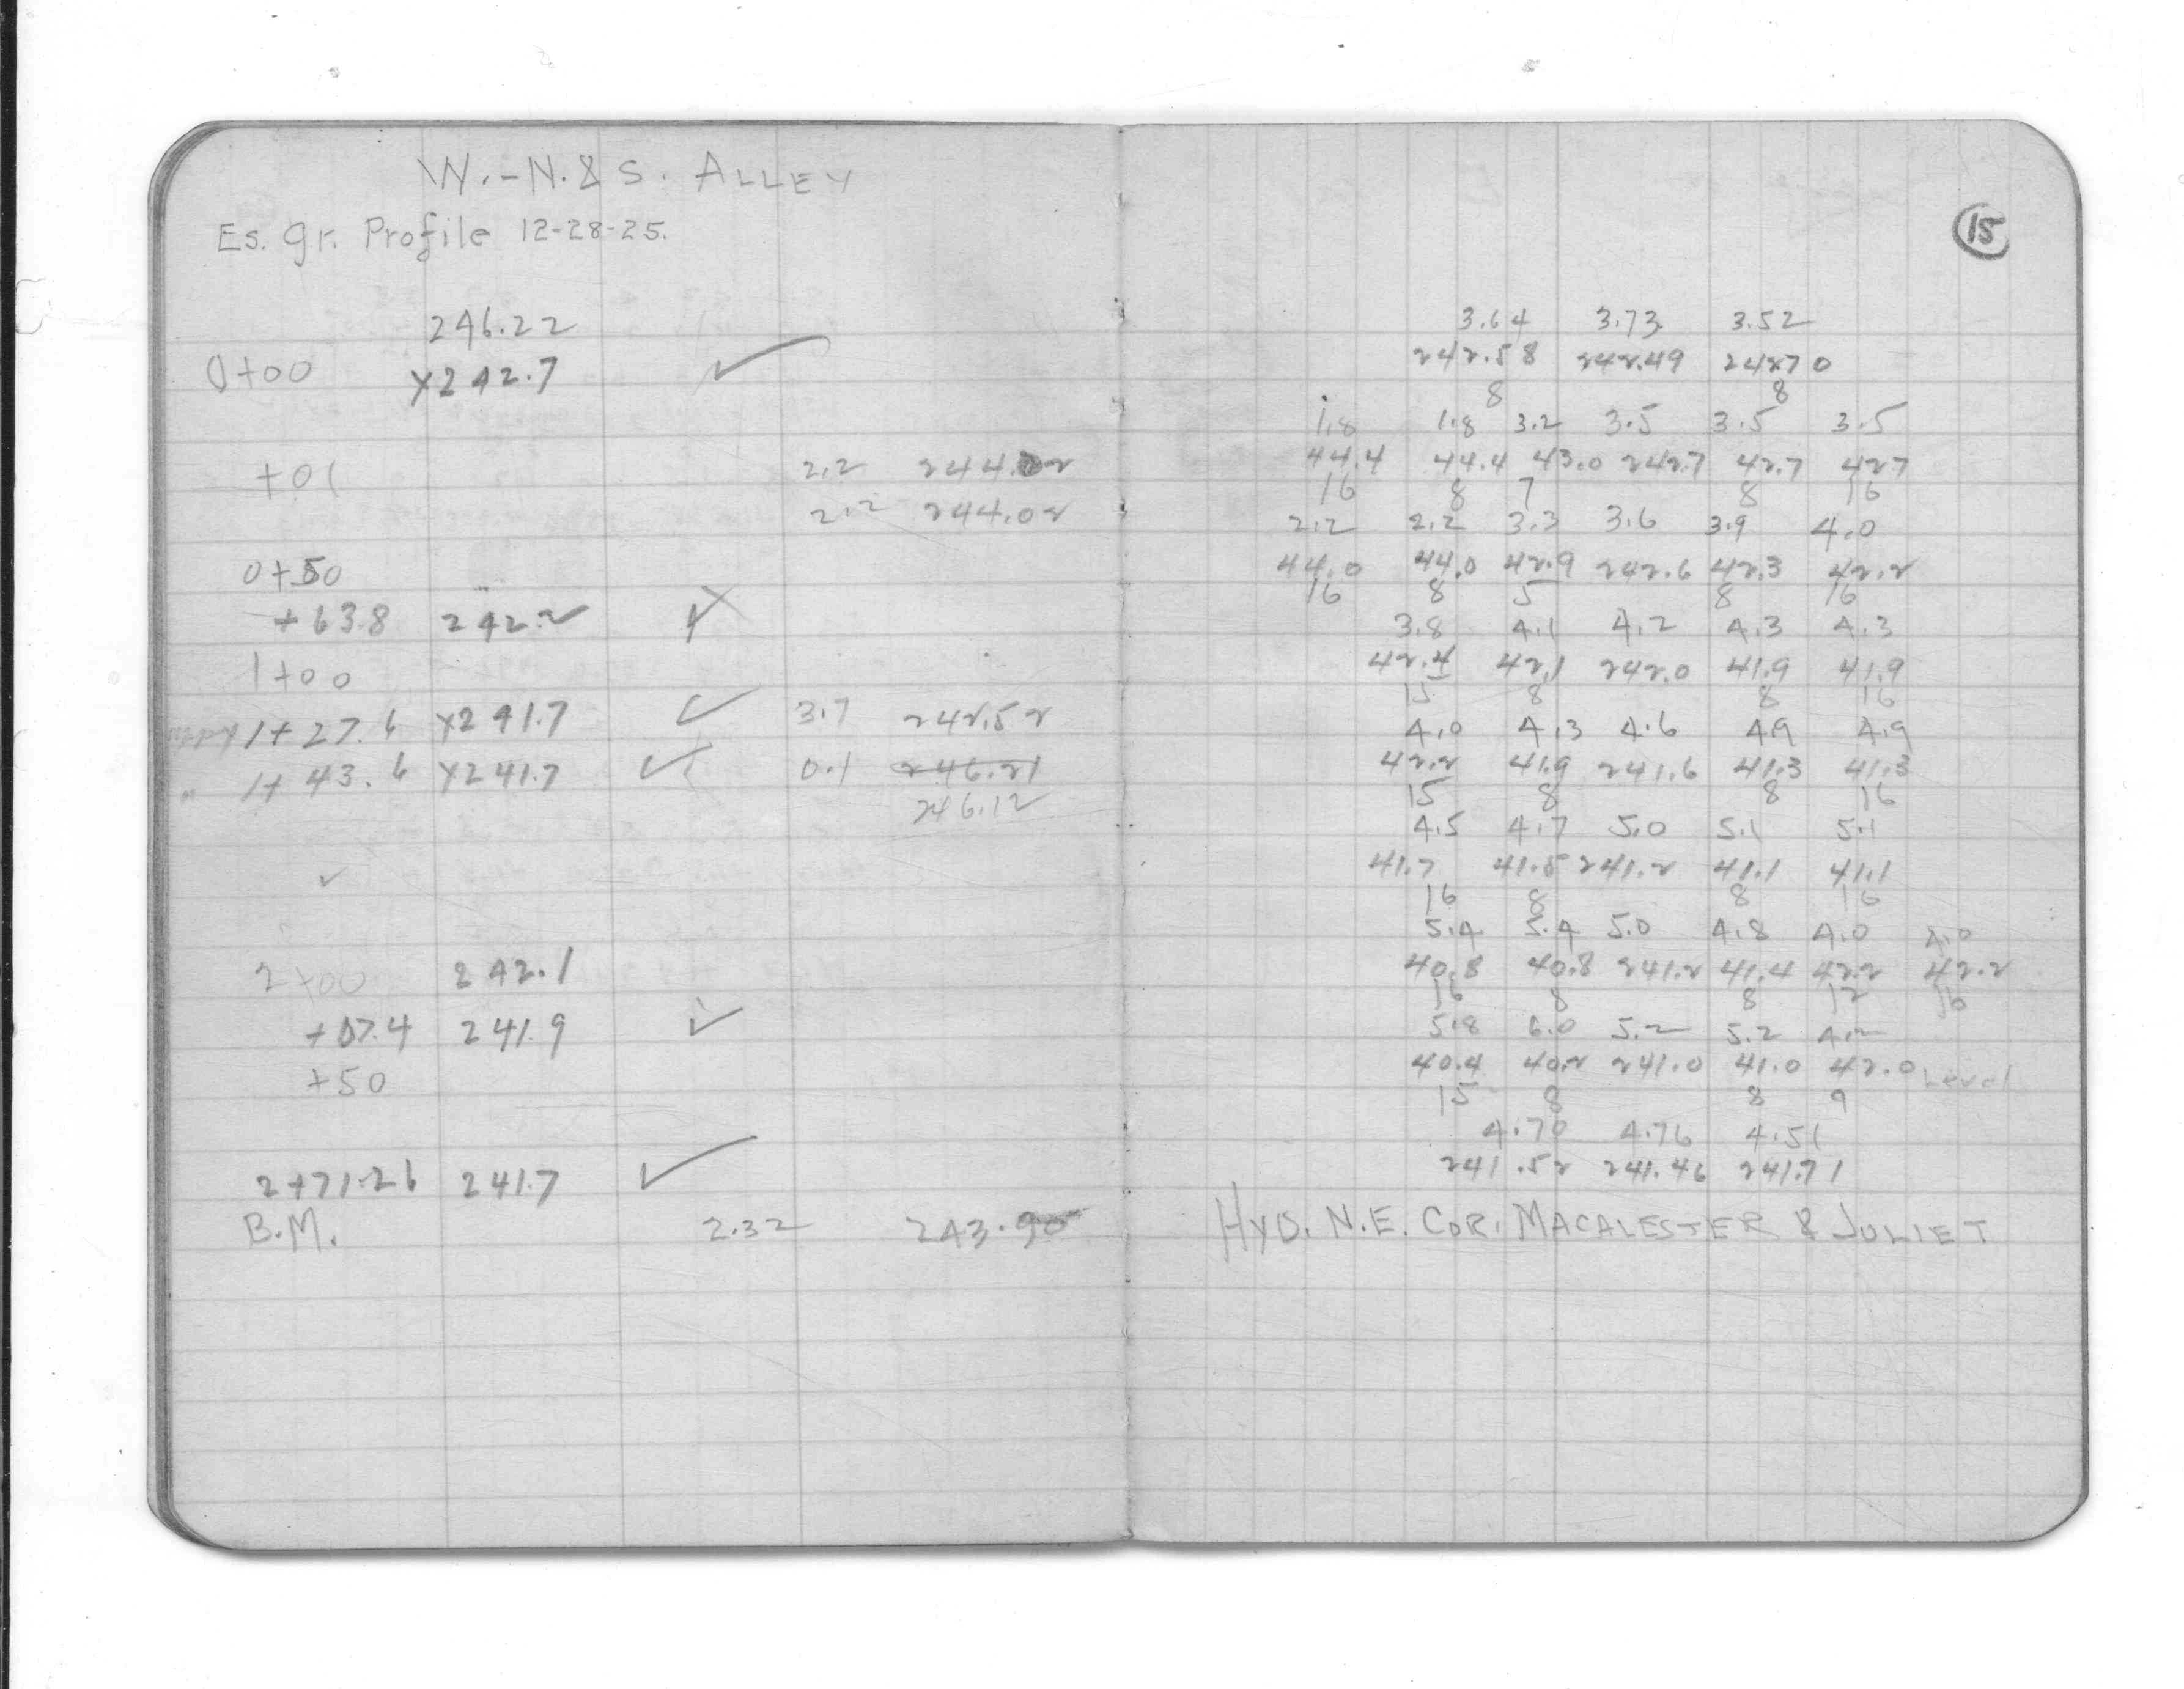 W.-N.&S. ALLEY
Es. gr. Profile 12-28-25.
246.22
0+00 x242.7 ✓
+01 2.2 244.02
2.2 244.02
0+50
+63.8 242.2
1+00
1+27.6 x241.7 ✓ 3.7 242.52
" 1+43.6 x241.7 ✓ 0.1 246.21
246.12
✓
2+00 242.1
+07.4 241.9 ✓
+50
2+71.26 241.7 ✓
B.M. 2.32 243.90
15
3.64 3.73 3.52
242.58 242.49 242.70
8 8
1.8 1.8 3.2 3.5 3.5 3.5
44.4 44.4 43.0 242.7 42.7 42.7
16 8 7 8 16
2.2 2.2 3.3 3.6 3.9 4.0
44.0 44.0 42.9 242.6 42.3 42.2
16 8 5 8 16
3.8 4.1 4.2 4.3 4.3
42.4 42.1 242.0 41.9 41.9
15 8 8 16
4.0 4.3 4.6 4.9 4.9
42.2 41.9 241.6 41.3 41.3
15 8 8 16
4.5 4.7 5.0 5.1 5.1
41.7 41.5 241.2 41.1 41.1
16 8 8 16
5.4 5.4 5.0 4.8 4.0 4.0
40.8 40.8 241.2 41.4 42.2 42.2
16 8 8 12 16
5.8 6.0 5.2 5.2 4.2
40.4 40.2 241.0 41.0 42.0 Level
15 8 8 9
4.70 4.76 4.51
241.52 241.46 241.71
HYD. N.E. COR. MACALESTER & JULIET